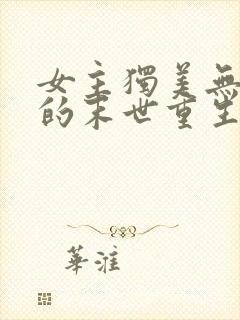 女主獨美無
的末世重生
華淮